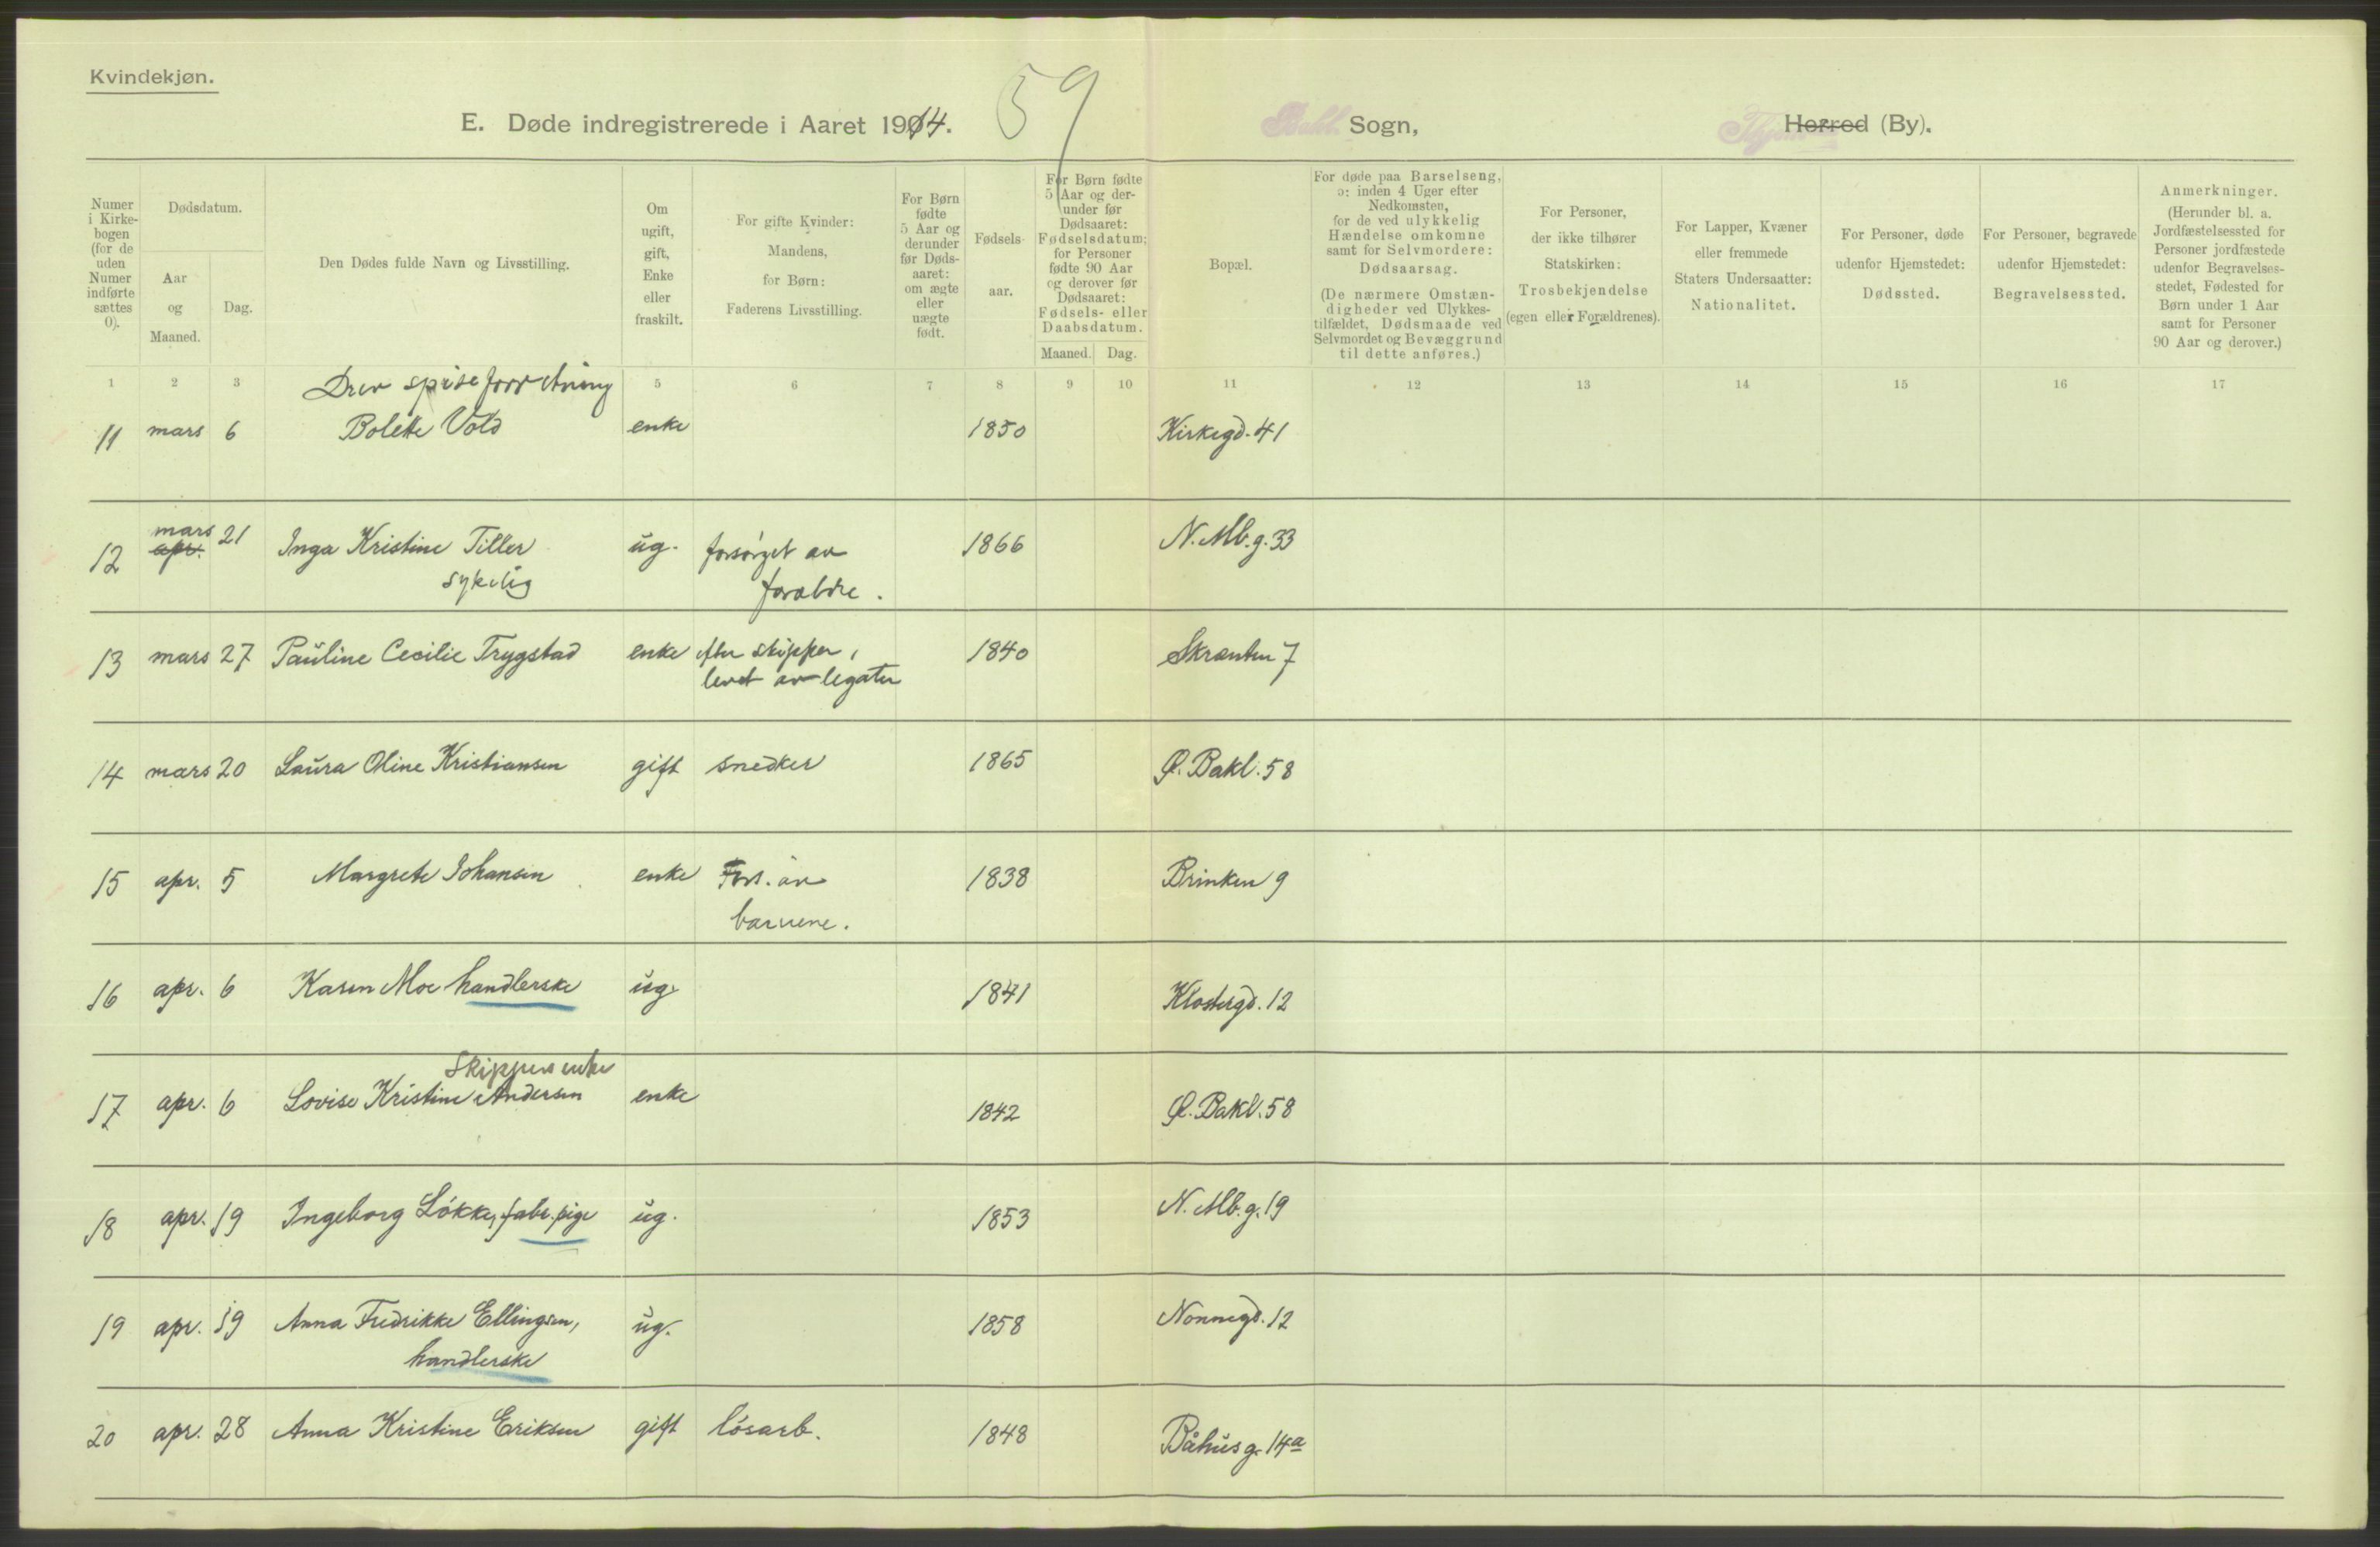 Kvindekjøn.
E. Døde indregistrerede i Aaret 1914.
59
Bakl. Sogn,
Herred (By).
Numer i Kirkebogen (for de uden Numer indførte sættes 0).
Dødsdatum.
Aar og Maaned.
Dag.
Den Dødes fulde Navn og Livsstilling.
Om ugift, gift, Enke eller fraskilt.
For gifte Kvinder: Mandens, for Børn: Faderens Livsstilling.
For Børn fødte 5 Aar og derunder før Dødsaaret: om ægte eller uægte født.
Fødselsaar.
For Børn fødte 5 Aar og derunder før Dødsaaret: Fødselsdatum; for Personer fødte 90 Aar og derover før Dødsaaret: Fødsels- eller Daabsdatum.
Maaned. Dag.
Bopæl.
For døde paa Barselseng, ɔ: inden 4 Uger efter Nedkomsten, for de ved ulykkelig Hændelse omkomne samt for Selvmordere: Dødsaarsag. (De nærmere Omstændigheder ved Ulykkestilfældet, Dødsmaade ved Selvmordet og Bevæggrund til dette anføres.)
For Personer, der ikke tilhører Statskirken: Trosbekjendelse (egen eller Forældrenes).
For Lapper, Kvæner eller fremmede Staters Undersaatter: Nationalitet.
For Personer, døde udenfor Hjemstedet: Dødssted.
For Personer, begravede udenfor Hjemstedet: Begravelsessted.
Anmerkninger. (Herunder bl. a. Jordfæstelsessted for Personer jordfæstede udenfor Begravelsesstedet, Fødested for Børn under 1 Aar samt for Personer 90 Aar og derover.)
1 2 3 5 6 7 8 9 10 11 12 13 14 15 16 17
Drev spiseforretning
11 mars 6 Bolette Vold enke 1850 Kirkegd. 41
mars
12 apr. 21 Inga Kristine Tiller ug. forsørget av 1866 N. Mb. g. 33
sykelig forældre.
13 mars 27 Pauline Cecilie Trygstad enke efter skipper, 1840 Skrænten 7
levet av legater
14 mars 20 Laura Oline Kristiansen gift snedker 1865 Ø. Bakl. 58
15 apr. 5 Margrete Johansen enke Fors. av 1838 Brinken 9
barnene.
16 apr. 6 Karen Moe handlerske ug. 1841 Klostergd. 12
Skippers enke
17 apr. 6 Lovise Kristine Andersen enke 1842 Ø. Bakl. 58
18 apr. 19 Ingeborg Løkke, fabr. pige ug. 1853 N. Mb. g. 19
19 apr. 19 Anna Fredrikke Ellingsen, ug. 1858 Nonnegd. 12
handlerske
20 apr. 28 Anna Kristine Eriksen gift løsarb. 1848 Båhusg. 14a